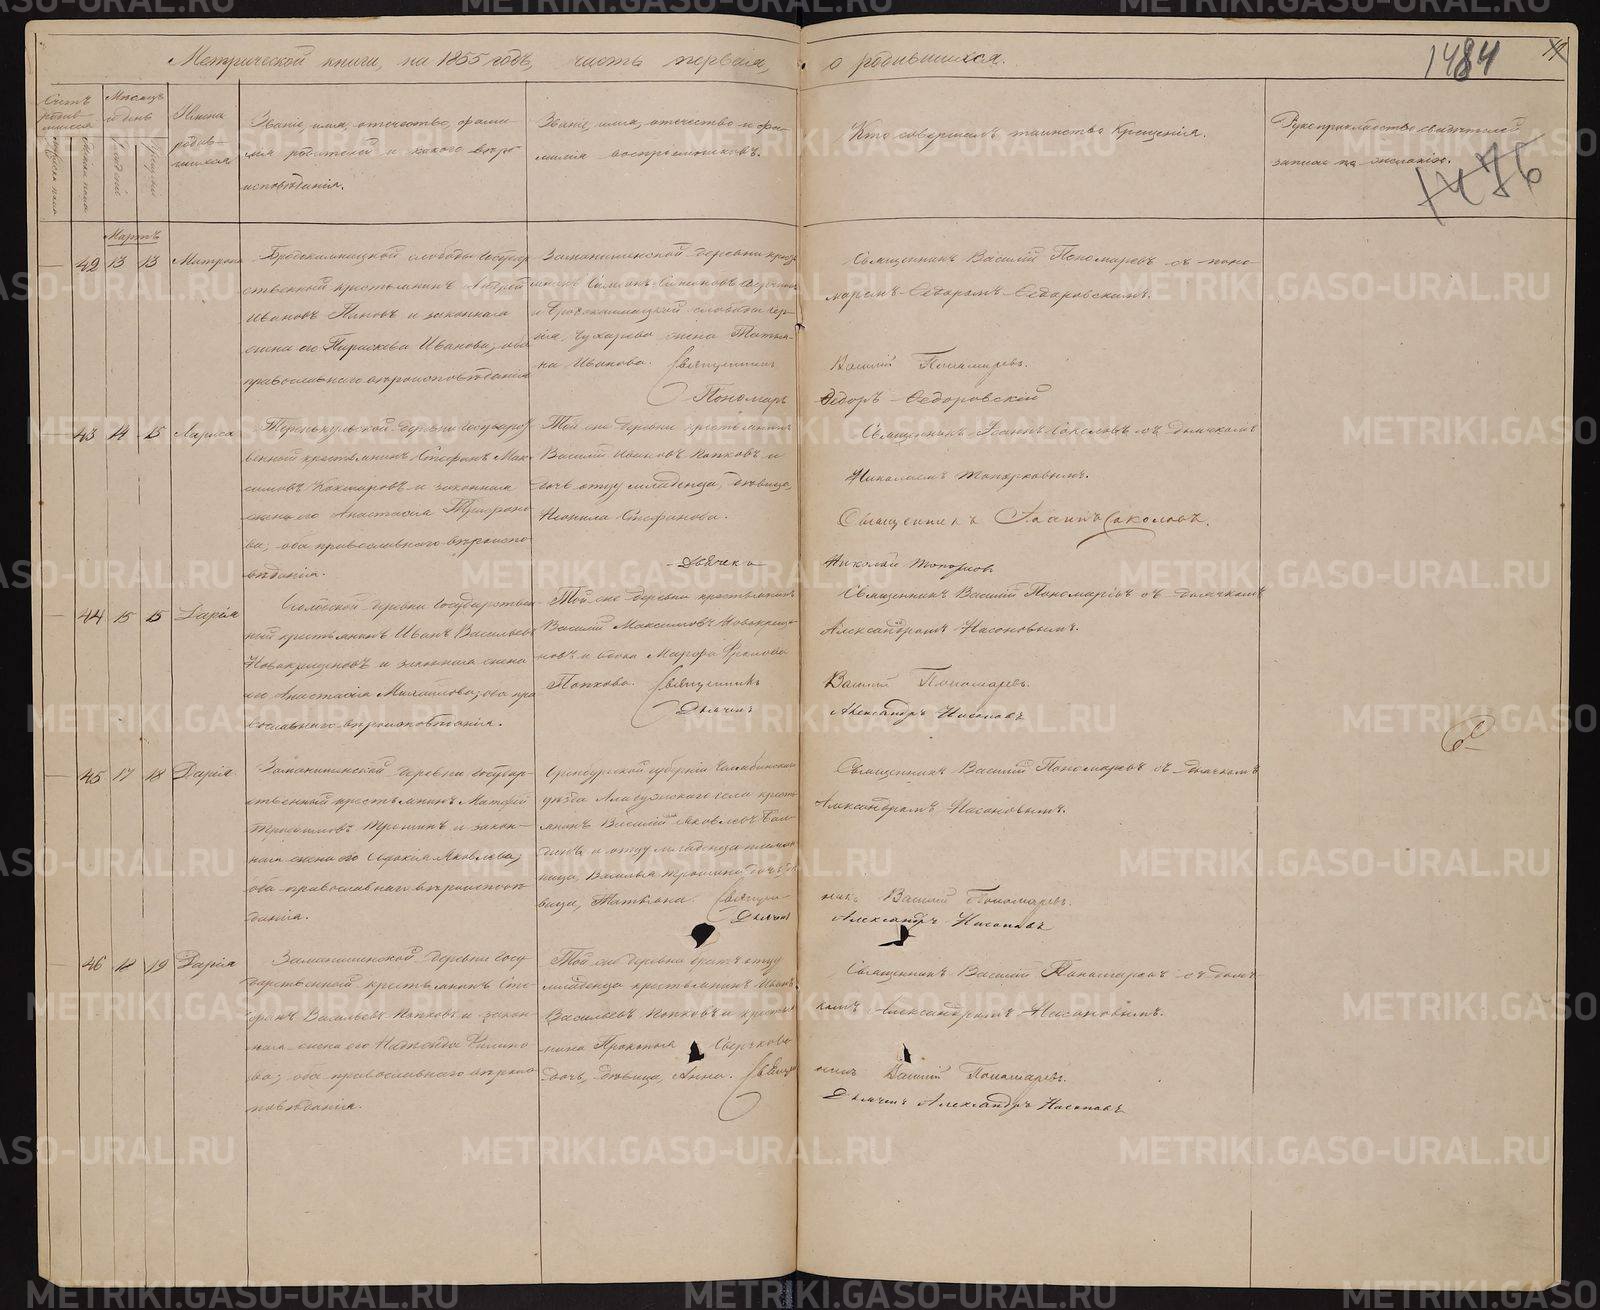 Метрической книги, на 1855 годъ, часть первая, о родившихся.
1484
1476
Счетъ родив-
шихся
Мѣсяцъ
и день
Имена
родив-
шихся
Званіе, имя, отечество, фами-
лія родителей и какого вѣро-
исповѣданія.
Званіе, имя, отечество и фа-
милія воспріемниковъ.
Кто совершалъ таинство Крещенія.
Рукоприкладство свидѣтелей
записи по желанію.
Мартъ
42 13 13 Матрона
Бродокалмацкой слободы Государ-
ственный крестьянинъ Андрей
Ивановъ Пановъ и законная
жена его Параскева Иванова, оба
православнаго вѣроисповѣданія
Заманилинской деревни
Симеонъ
и Бродокалмацкой слободы
жена Татья-
на Иванова. Священникъ
Пономарь
Священникъ Василій Пономаревъ съ поно-
маремъ Ѳедоромъ Ѳедоровскимъ.
Василій Пономаревъ.
Ѳедоръ Ѳедоровскій
43 14 15 Лариса
деревни Государст-
венной крестьянинъ Стефанъ Мак-
симовъ и законная
жена его Анастасія Трифоно-
ва, оба православнаго вѣроиспо-
вѣданія.
Той же деревни крестьянинъ
Василій Ивановъ Попковъ и
дочь отцу младенца, дѣвица,
Неонила Стефанова.
Дьячекъ
Священникъ Іоаннъ Соколовъ съ дьячкомъ
Николаемъ Топорковымъ.
Священникъ Іоаннъ Соколовъ.
Николай Топорковъ
44 15 15 Дарія
деревни Государствен-
ный крестьянинъ Иванъ Васильевъ
Новокрещеновъ и законная жена
его Анастасія Михайлова, оба пра-
вославнаго вѣроисповѣданія.
Той же деревни крестьянинъ
Василій Максимовъ Новокреще-
новъ и Марфа
Попкова. Священникъ
Дьячекъ
Священникъ Василій Пономаревъ съ дьячкомъ
Александромъ Насоновымъ.
Василій Пономаревъ.
Александръ Насоновъ
45 17 18 Дарія
Заманилинской деревни Государ-
ственный крестьянинъ Матѳей
Трошинъ и закон-
ная жена его Яковлева,
оба православнаго вѣроисповѣ-
данія.
Оренбургской губерніи Челябинскаго
уѣзда села кресть-
янинъ Василій Яковлевъ
и отцу младенца племян-
ница, Василья Трошина дочь дѣ-
вица, Татьяна. Священ-
Дьячекъ
Священникъ Василій Пономаревъ съ дьячкомъ
Александромъ Насоновымъ.
никъ Василій Пономаревъ.
Александръ Насоновъ
46 18 19 Дарія
Заманилинской деревни Госу-
дарственной крестьянинъ Сте-
фанъ Васильевъ Попковъ и закон-
ная жена его Надежда Филипо-
ва, оба православнаго вѣроис-
повѣданія.
Той же деревни братъ отцу
младенца крестьянинъ Иванъ
Васильевъ Попковъ и крестья-
нина Прокопья Сверчкова
дочь, дѣвица, Анна. Священ-
Священникъ Василій Пономаревъ съ дьяч-
комъ Александромъ Насоновымъ.
никъ Василій Пономаревъ.
Дьячекъ Александръ Насоновъ
METRIKI.GASO-URAL.RU